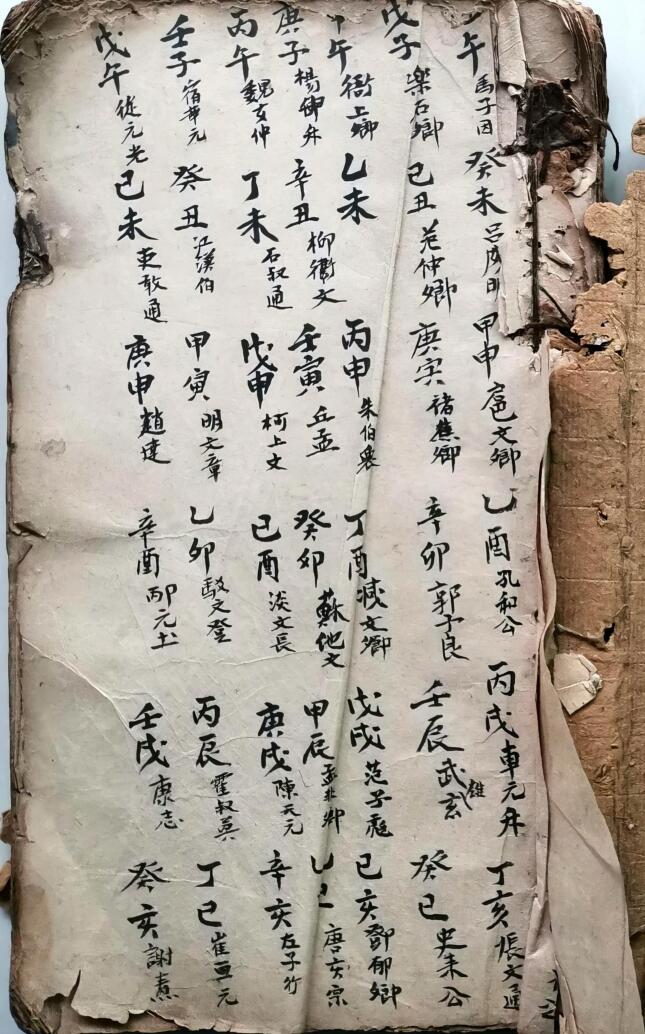 午 馬子因 癸未 呂廣明 甲申 扈文卿 乙酉 孔和公 丙戌 車元升 丁亥 張文通
戊子 樂石卿 己丑 范仲卿 庚寅 褚進卿 辛卯 郭子良 壬辰 武玄 癸巳 史未公
午 衛上卿 乙未 丙申 朱伯衆 丁酉 臧文卿 戊戌 范子彪 己亥 鄧郁卿
庚子 楊仰升 辛丑 柳衢文 壬寅 丘孟 癸卯 蘇他文 甲辰 孟非卿 乙巳 唐文宗
丙午 魏文仲 丁未 石叔通 戊申 柯上文 己酉 淡文長 庚戌 陳天元 辛亥 左子行
壬子 宿 元 癸丑 江漢伯 甲寅 明文章 乙卯 文登 丙辰 霍叔英 丁巳 崔亘元
戊午 從元光 己未 敢通 庚申 趙達 辛酉 邴元士 壬戌 康志 癸亥 謝燾